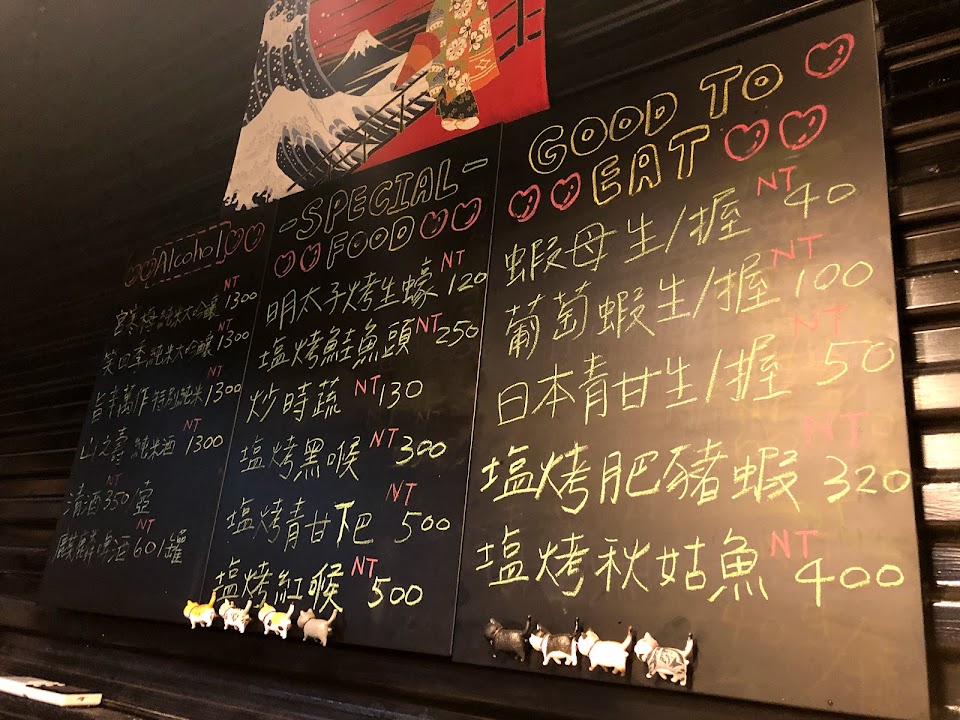 Alcohol
宮寒梅 純米大吟醸 NT 1300
笑四季 純米大吟醸 NT 1300
旨辛萬作 特別純米 NT 1300
山之壽 純米酒 NT 1300
清酒 NT 350/壺
麒麟啤酒 NT 60/罐
-SPECIAL-
FOOD
明太子烤生蠔 NT 120
塩烤鮭魚頭 NT 250
炒時蔬 NT 130
塩烤黑喉 NT 300
塩烤青甘下巴 NT 500
塩烤紅喉 NT 500
GOOD TO
EAT
蝦母生/握 NT 40
葡萄蝦生/握 NT 100
日本青甘生/握 NT 50
塩烤肥豬蝦 NT 320
塩烤秋姑魚 NT 400